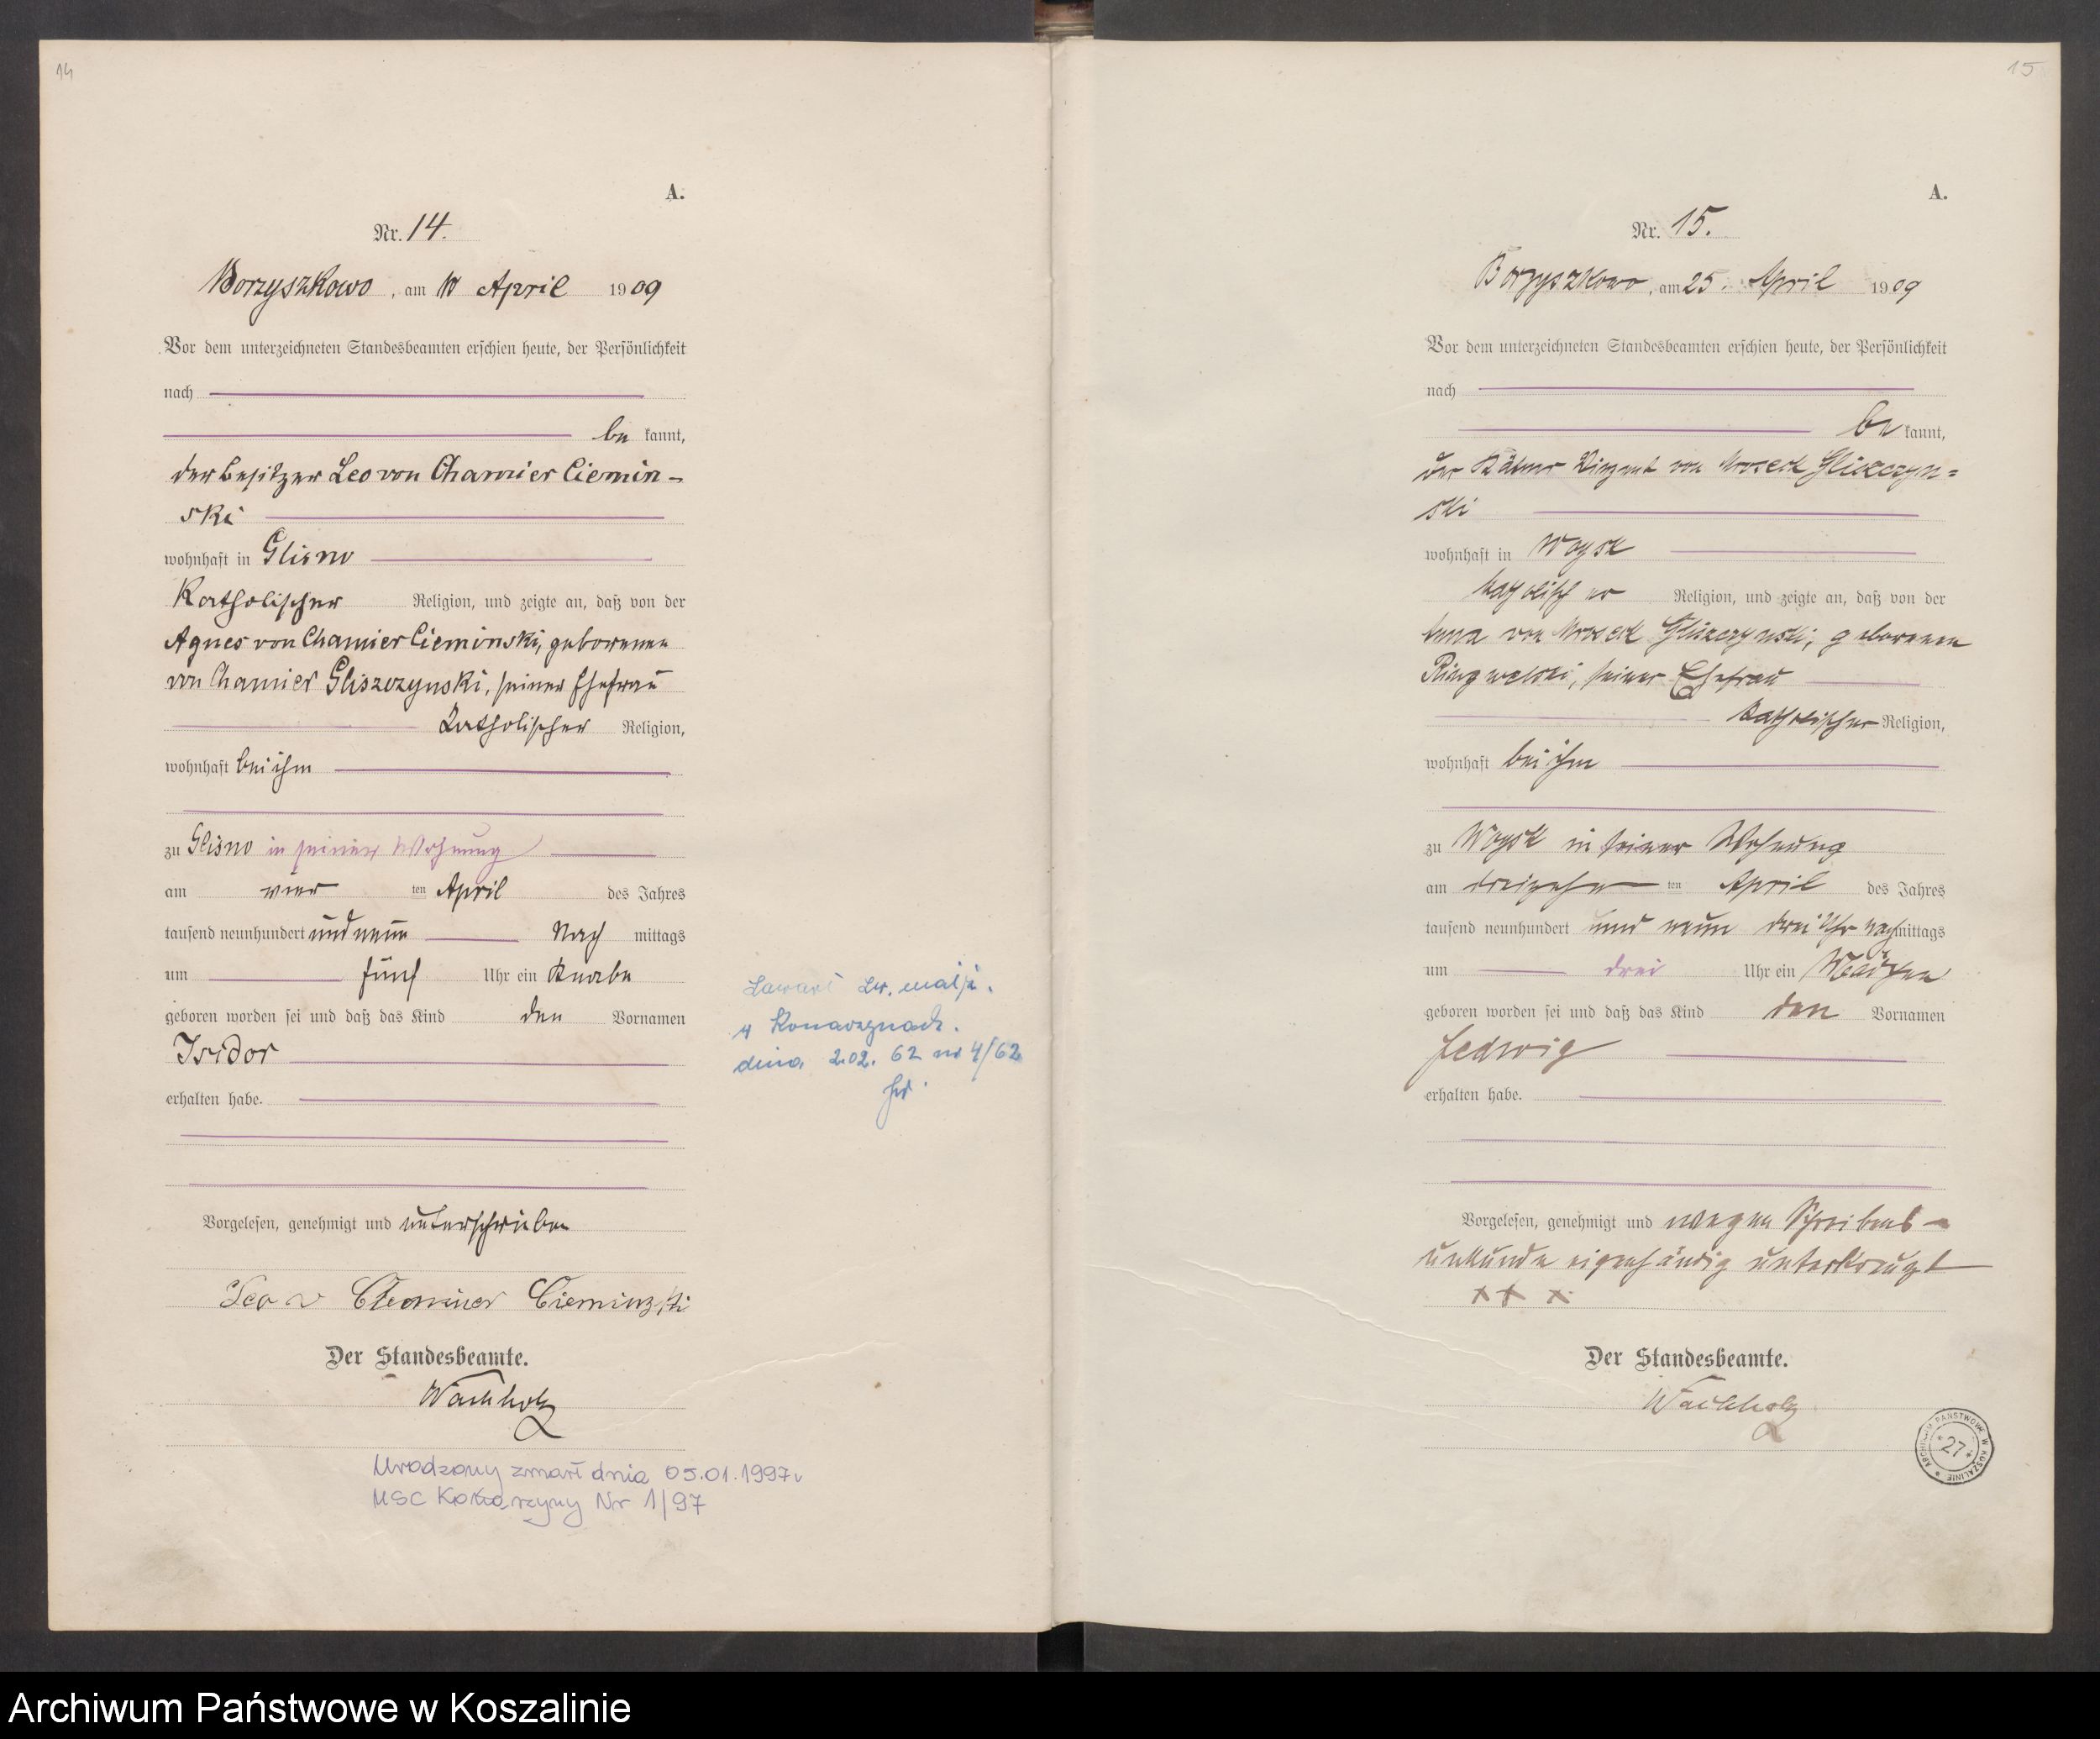 14
A.
Nr. 14.
Borzyszkowo, am April 1909
Vor dem unterzeichneten Standesbeamten erschien heute, der Persönlichkeit
nach
be kannt,
der Besitzer Leo von Chamier Ciemin-
ski
wohnhaft in Glisno
Katholischer Religion, und zeigte an, daß von der
Agnes von Chamier Cieminski, geborenen
von Chamier Gliszczynski, seiner Ehefrau
Katholischer Religion,
wohnhaft bei ihm
zu Glisno in seiner Wohnung
am vier ten April des Jahres
tausend neunhundert und neun Nach mittags
um fünf Uhr ein Knabe
geboren worden sei und daß das Kind den Vornamen
Isidor
erhalten habe.
Vorgelesen, genehmigt und unterschrieben
Leo v Chamier Cieminski
Der Standesbeamte.
Wachholz
Urodzony zmarł dnia 05.01.1997r
USC Nr 1/97
Zawarł zw. małż.
w Konarzynach.
dnia 2.02. 62 nr 4/62
15
A.
Nr. 15.
Borzyszkowo, am 25. April 1909
Vor dem unterzeichneten Standesbeamten erschien heute, der Persönlichkeit
nach
be kannt,
der Käthner Vinzent von Mrozek Gliszczyn=
ski
wohnhaft in Woysk
katholischer Religion, und zeigte an, daß von der
Anna von Mrozek Gliszczynski, geborenen
Ringwelski, seiner Ehefrau
katholischer Religion,
wohnhaft bei ihm
zu Woysk in seiner Wohnung
am dreizehn ten April des Jahres
tausend neunhundert und neun drei Uhr nachmittags
um drei Uhr ein Mädchen
geboren worden sei und daß das Kind den Vornamen
Hedwig
erhalten habe.
Vorgelesen, genehmigt und wegen Schreibens-
unkunde eigenhändig unterkreuzt
+ + +
Der Standesbeamte.
Wachholz
ARCHIWUM PAŃSTWOWE W KOSZALINIE
* 27 *
Archiwum Państwowe w Koszalinie